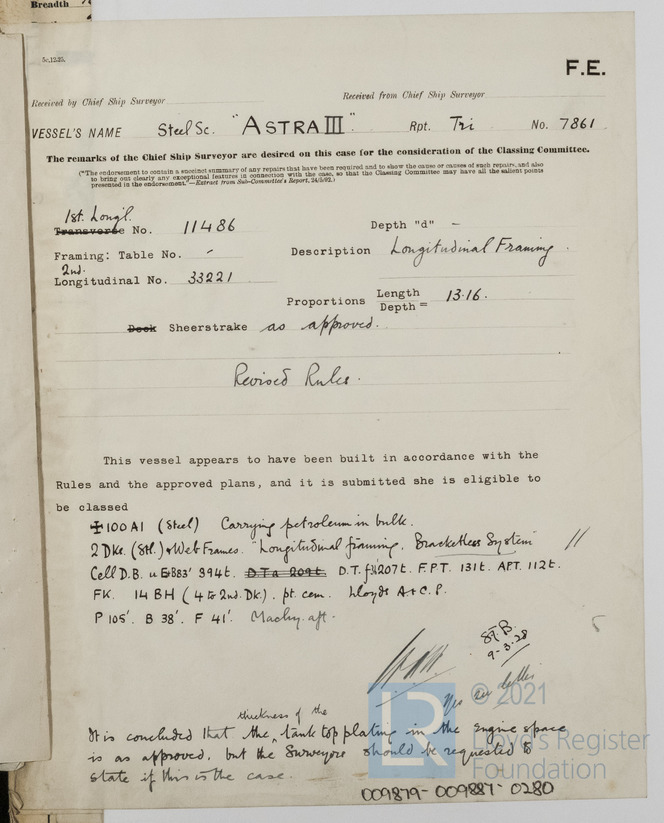 Breadth
5c,12.25.
F.E.
Received by Chief Ship Surveyor
Received from Chief Ship Surveyor
VESSEL'S NAME Steel Sc. "ASTRA III". Rpt. Tri No. 7861
The remarks of the Chief Ship Surveyor are desired on this case for the consideration of the Classing Committee.
("The endorsement to contain a succinct summary of any repairs that have been required and to show the cause or causes of such repairs, and also
to bring out clearly any exceptional features in connection with the case, so that the Classing Committee may have all the salient points
presented in the endorsement."—Extract from Sub-Committee's Report, 24/5/02.)
1st. Longl.
Transverse No. 11486 Depth "d" -
Framing: Table No. - Description Longitudinal Framing.
2nd.
Longitudinal No. 33221
Proportions Length
Depth = 13.16.
Deck Sheerstrake as approved.
Revised Rules.
This vessel appears to have been built in accordance with the
Rules and the approved plans, and it is submitted she is eligible to
be classed
✠100A1 (Steel) Carrying petroleum in bulk.
2 Dks. (Stl.) & Web Frames. "Longitudinal framing. Bracketless System"
Cell D.B. u E&B83' 394t. D.T.a 209t. D.T.f 207t. F.P.T. 131t. APT. 112t.
FK. 14 BH (4 to 2nd. Dk.). pt. cem. Lloyds A & C.P.
P 105'. B 38'. F 41'. Machy. aft.
9-3-28
5
thickness of the
It is concluded that the tank top plating in the engine space
is as approved, but the Surveyors should be requested to
state if this is the case.
© 2021
LR
Lloyd's Register
Foundation
009879-009887-0280